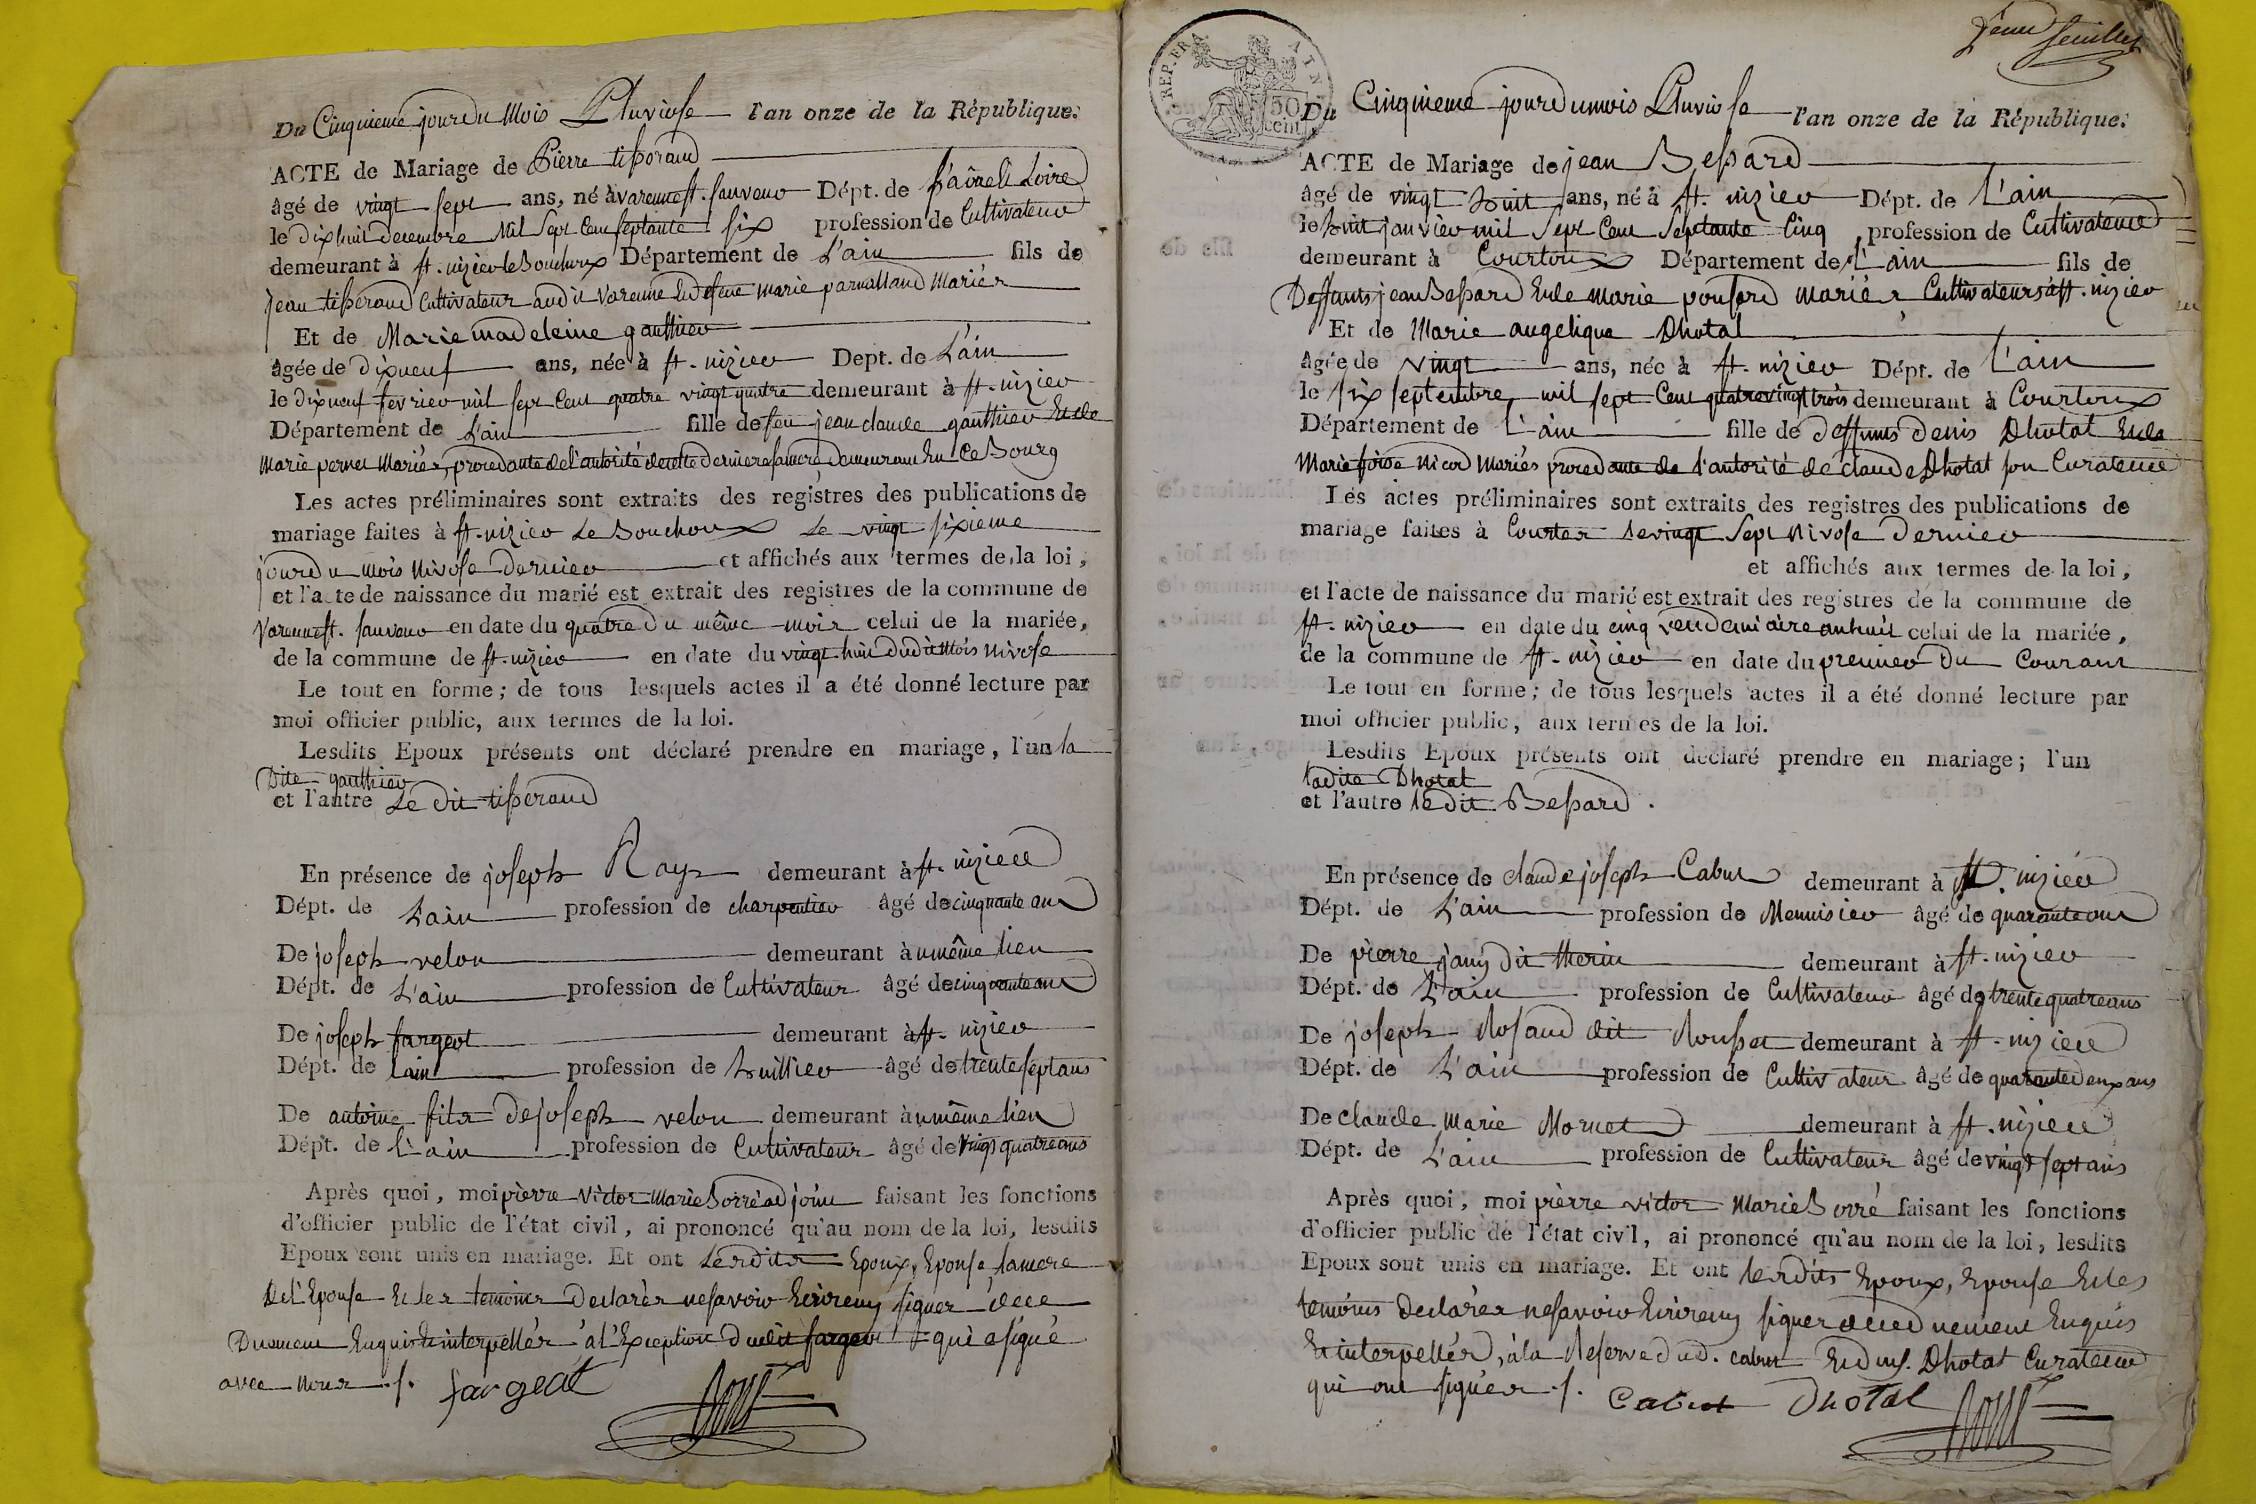 Du Cinquieme jour du Mois Pluviose l'an onze de la République.
ACTE de Mariage de Pierre tisserand
âgé de vingt sept ans, né à varenne st. sauveur Dépt. de saône & Loire
le dix huit decembre Mil Sept Cent septante six profession de Cultivateur
demeurant à st. nizier le Bouchoux Département de L'ain fils de
jean tisserand Cultivateur audit varenne Et de feue marie parnalland Mariés
Et de Marie madeleine gauthier
âgée de dix neuf ans, née à st. nizier Dept. de L'ain
le dix neuf fevrier mil sept cent quatre vingt quatre demeurant à st. nizier
Département de L'ain fille de feu jean claude gauthier Et de
Marie pernet Mariés, procedante de l'autorité de cette derniere sa mere demeurant En ce Bourg
Les actes préliminaires sont extraits des registres des publications de
mariage faites à st. nizier Le Bouchoux Le vingt sixieme
jour du mois Nivose dernier et affichés aux termes de la loi,
et l'acte de naissance du marié est extrait des registres de la commune de
varenne st. sauveur en date du quatre du même mois celui de la mariée,
de la commune de st. nizier en date du vingt huit dudit Mois nivose
Le tout en forme; de tous lesquels actes il a été donné lecture par
moi officier public, aux termes de la loi.
Lesdits Epoux présents ont déclaré prendre en mariage, l'un la
Dite gauthier
et l'autre Le dit tisserand
En présence de joseph Ray demeurant à st. nizier
Dépt. de L'ain profession de charpentier âgé de cinquante ans
De joseph velon demeurant à u même lieu
Dépt. de L'ain profession de Cultivateur âgé de cinquante ans
De joseph fargeot demeurant à st. nizier
Dépt. de L'ain profession de huillier âgé de trente sept ans
De antoine fils de joseph velon demeurant à u même lieu
Dépt. de L'ain profession de Cultivateur âgé de vingt quatre ans
Après quoi, moi pierre victor Marie Borré adjoint faisant les fonctions
d'officier public de l'état civil, ai prononcé qu'au nom de la loi, lesdits
Epoux sont unis en mariage. Et ont Lesdits Epoux, Epouse, la mere
De l'Epouse Et les temoins Declarés ne savoir Ecrire ny signer de ce
Duement Enquis Et interpellés à l'Exception dudit fargeot qui a signé
avec nous ./.
fargeat
Borré
2eme feuillet
REP. FRA.
50 cent
Du Cinquieme jour du mois Pluviose l'an onze de la République.
ACTE de Mariage de jean Bessard
âgé de vingt huit ans, né à st. nizier Dépt. de L'ain
le huit janvier mil sept Cent Septante Cinq profession de Cultivateur
demeurant à Courtoux Département de L'ain fils de
Deffunts jean Bessard Et de Marie ponsard mariés Cultivateurs à st. nizier
Et de Marie angelique Dhotal
âgée de vingt ans, née à st. nizier Dépt. de L'ain
le six septembre mil sept Cent quatre vingt trois demeurant à Courtoux
Département de L'ain fille de deffunts denis Dhotal Et de
Marie foise Nicod Mariés procedante de l'autorité de claude Dhotal son Curateur
Les actes préliminaires sont extraits des registres des publications de
mariage faites à Courtes le vingt Sept Nivose Dernier
et affichés aux termes de la loi,
et l'acte de naissance du marié est extrait des registres de la commune de
st. nizier en date du cinq vendemiaire an huit celui de la mariée,
de la commune de st. nizier en date du premier du Courant
Le tout en forme; de tous lesquels actes il a été donné lecture par
moi officier public, aux termes de la loi.
Lesdits Epoux présents ont déclaré prendre en mariage; l'un
ladite Dhotal
et l'autre le dit Bessard.
En présence de claude joseph Cabut demeurant à st. nizier
Dépt. de L'ain profession de Menuisier âgé de quarante ans
De pierre jany dit therin demeurant à st. nizier
Dépt. de L'ain profession de Cultivateur âgé de trente quatre ans
De joseph Rosand dit Rousset demeurant à st. nizier
Dépt. de L'ain profession de Cultivateur âgé de quarante deux ans
De claude Marie Mornet demeurant à st. nizier
Dépt. de L'ain profession de Cultivateur âgé de vingt sept ans
Après quoi, moi pierre victor Marie Borré faisant les fonctions
d'officier public de l'état civil, ai prononcé qu'au nom de la loi, lesdits
Epoux sont unis en mariage. Et ont lesdits Epoux, Epouse Et les
temoins Declarés ne savoir Ecrire ny signer de ce duement Enquis
Et interpellés, à la Reserve dud. cabut Et dud. Dhotal Curateur
qui ont signés ./.
Cabut Dhotal Borré